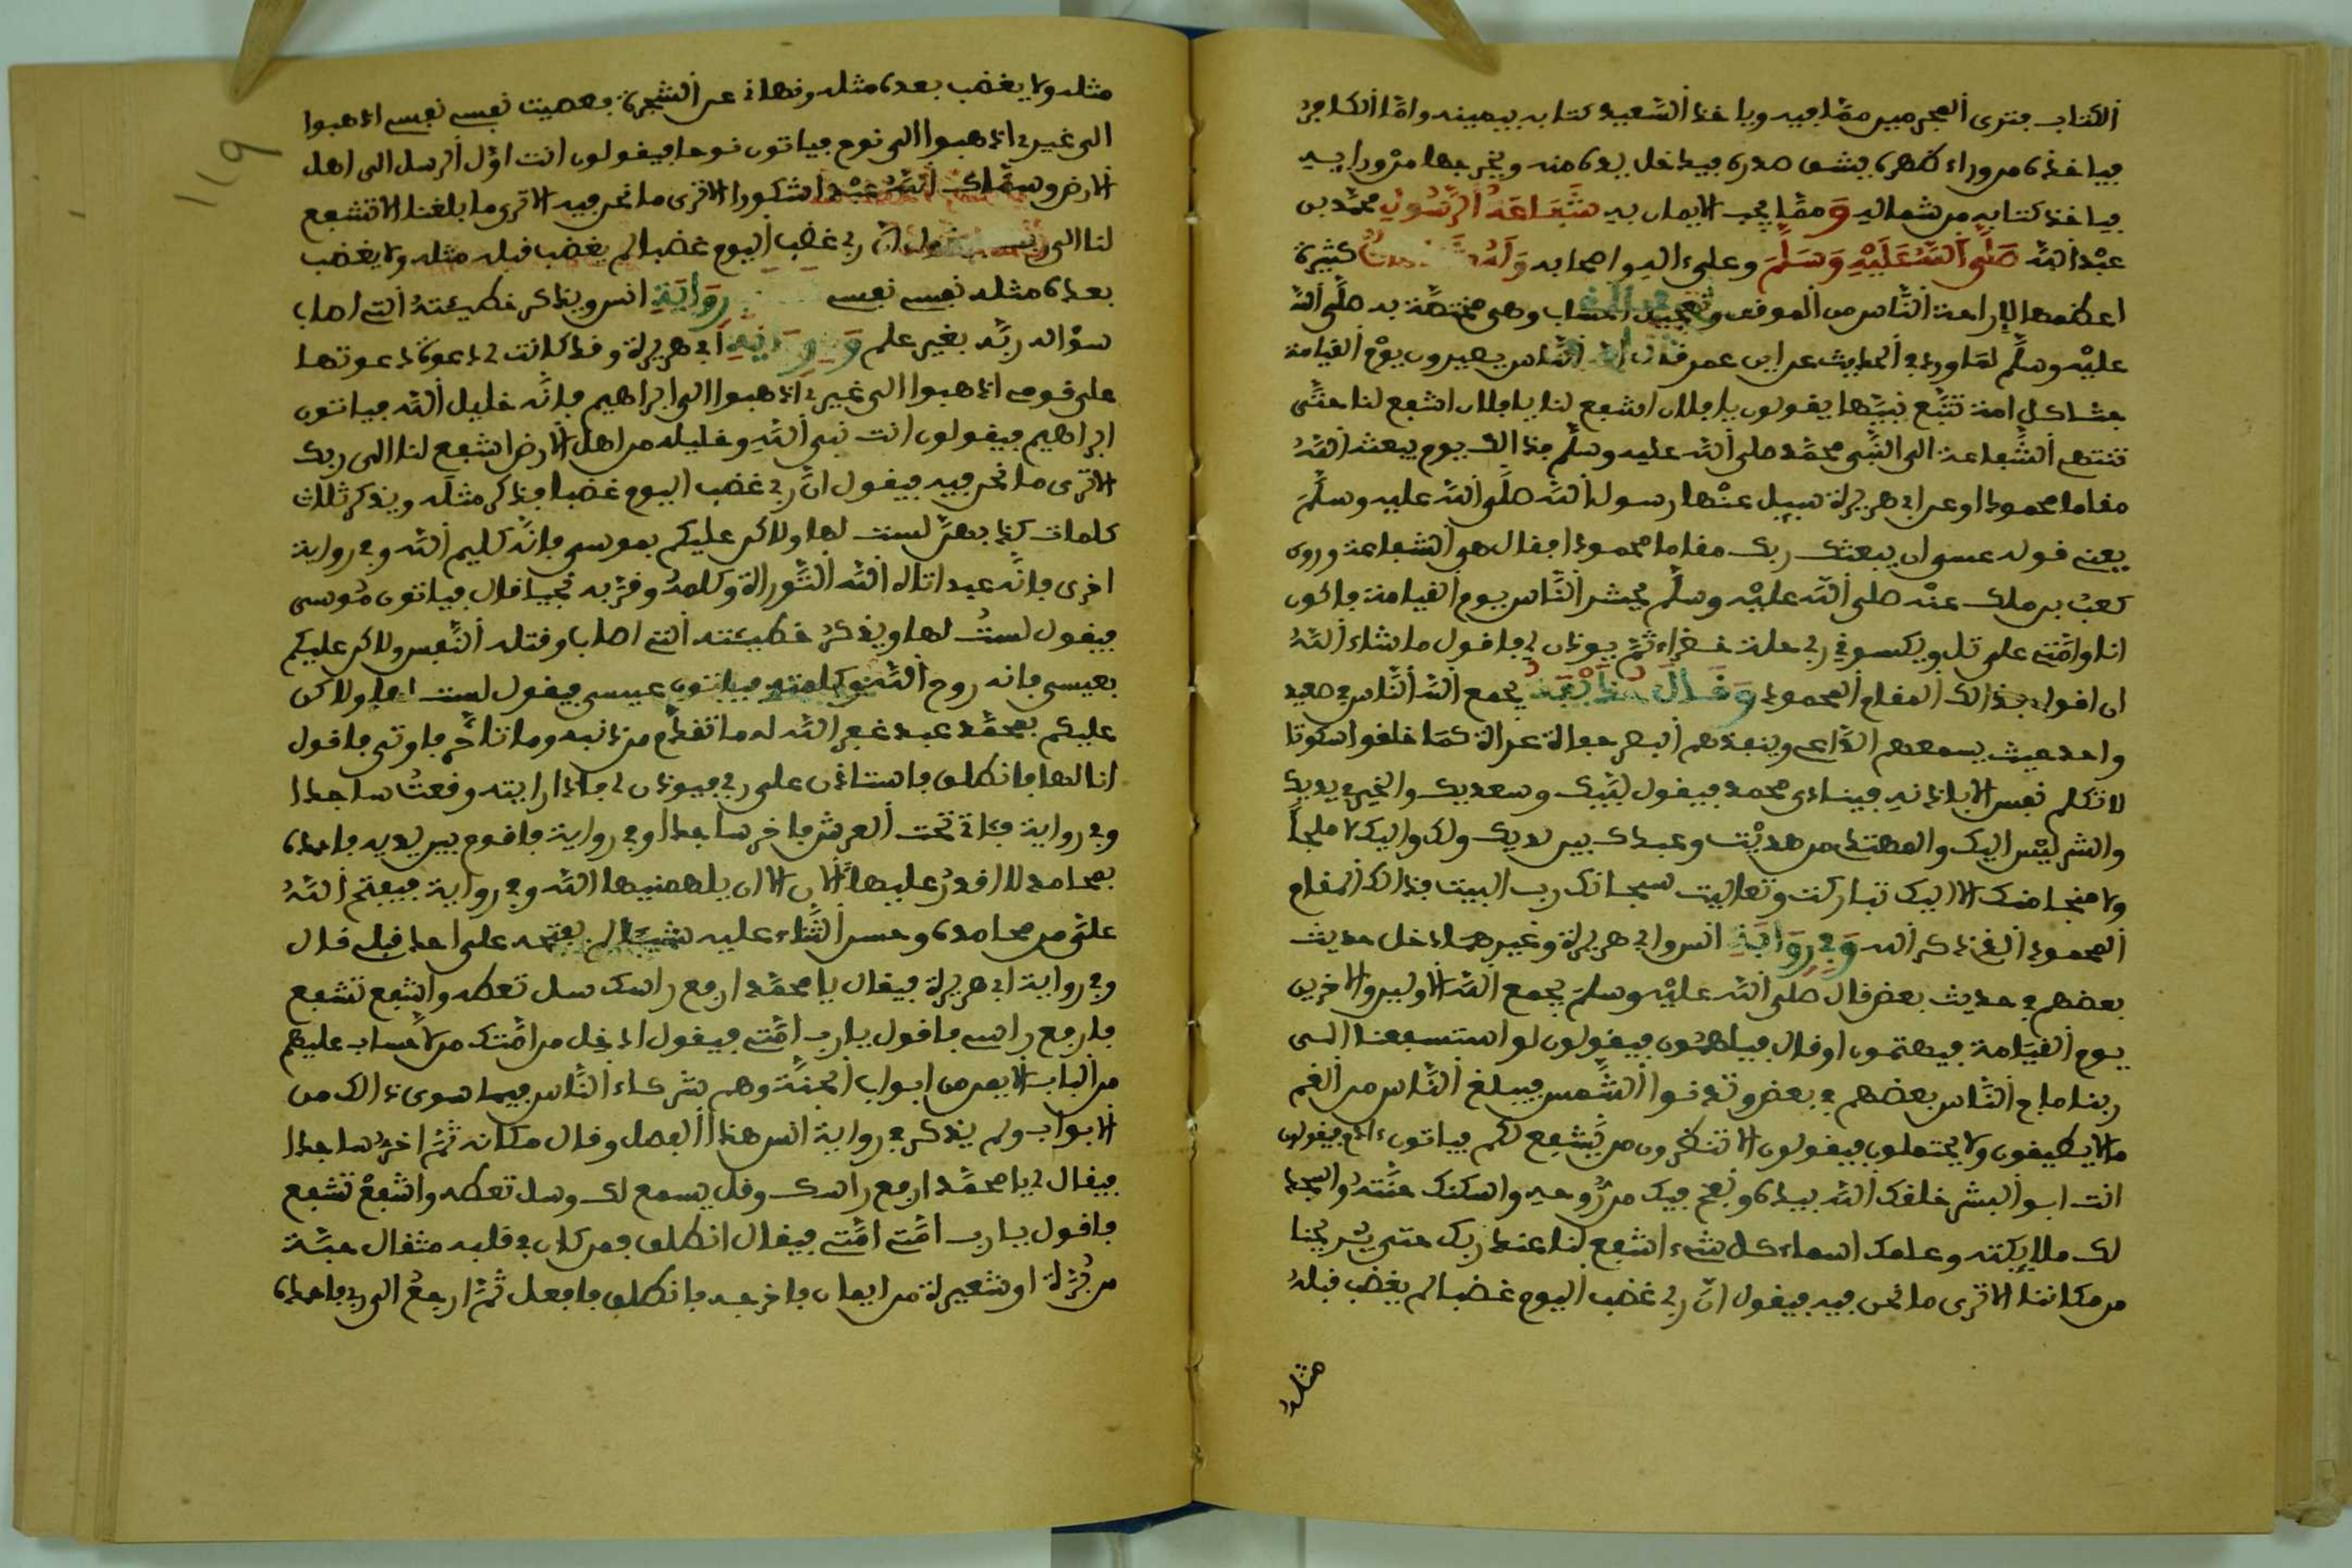 الكتاب فترى المجرمين مما فيه وياخذ السعيد كتابه بيمينه واما الكافر
فياخذه من وراء ظهره يشق صدره فيدخل يده منه ويخرجها من ورايه
فياخذ كتابه من شماله ومما يجب الايمان به شفاعة الرسول محمد بن
عبد الله صلى الله عليه وسلم وعلى اله واصحابه وله كثيرة
اعظمها لاراحة الناس من الموقف وتعجيل الحساب وهي مختصة به صلى الله
عليه وسلم لما ورد في الحديث عن ابن عمر قال ان الناس يصيرون يوم القيامة
جثا كل امة تتبع نبيها يقولون يا فلان اشفع لنا يا فلان اشفع لنا حتى
تنتهي الشفاعة الى النبي محمد صلى الله عليه وسلم فذالك يوم يبعثه الله
مقاما محمودا وعن ابي هريرة سيل عنها رسول الله صلى الله عليه وسلم
يعني قوله عسى ان يبعثك ربك مقاما محمودا فقال هي الشفاعة وروى
كعب بن ملك عنه صلى الله عليه وسلم يحشر الناس يوم القيامة فاكون
انا وامتي على تل ويكسوني ربي حلة خضراء ثم يوذن لي فاقول ما شاء الله
ان اقول فذالك المقام المحمود وقال حذيفة يجمع الله الناس في صعيد
واحد حيث يسمعهم الداعي وينفذهم البصر حفاة عراة كما خلقوا سكوتا
لا تكلم نفس الا باذنه فينادى محمد فيقول لبيك وسعديك والخير في يديك
والشر ليس اليك والمهتدي من هديت وعبدك بين يديك ولك واليك لا ملجأ
ولا منجا منك الا اليك تباركت وتعاليت سبحانك رب البيت فذالك المقام
المحمود الذي ذكر الله وفي رواية انس وابي هريرة وغيرهما دخل حديث
بعضهم في حديث بعض قال صلى الله عليه وسلم يجمع الله الاولين والاخرين
يوم القيامة فيهتمون او قال فيلهمون فيقولون لو استشفعنا الى
ربنا ماج الناس بعضهم في بعض وتدنوا الشمس فيبلغ الناس من الغم
ما لا يطيقون ولا يحتملون فيقولون الا تنظرون من يشفع لكم فياتون ءادم فيقولون
انت ابو البشر خلقك الله بيده ونفخ فيك من روحه واسكنك جنته واسجد
لك ملايكته وعلمك اسماء كل شيء اشفع لنا عند ربك حتى يريحنا
من مكاننا الا ترى ما نحن فيه فيقول ان ربي غضب اليوم غضبا لم يغضب قبله
مثله
119
مثله ولا يغضب بعده مثله ونهاني عن الشجرة فعصيت نفسي نفسي اذهبوا
الى غيري اذهبوا الى نوح فياتون نوحا فيقولون انت اول الرسل الى اهل
الارض وسماك الله عبدا شكورا الا ترى ما نحن فيه الا ترى ما بلغنا الا تشفع
لنا الى ربك فيقول ان ربي غضب اليوم غضبا لم يغضب قبله مثله ولا يغضب
بعده مثله نفسي نفسي رواية انس ويذكر خطيئته التي اصاب
سؤاله ربه بغير علم وفي رواية ابي هريرة وقد كانت لي دعوة دعوتها
على قومي اذهبوا الى غيري اذهبوا الى ابراهيم فانه خليل الله فياتون
ابراهيم فيقولون انت نبي الله وخليله من اهل الارض اشفع لنا الى ربك
الا ترى ما نحن فيه فيقول ان ربي غضب اليوم غضبا فذكر مثله ويذكر ثلاث
كلمات كذبهن لست لها ولاكن عليكم بموسى فانه كليم الله وفي رواية
اخرى فانه عبد اتاه الله التوراة وكلمه وقربه نجيا قال فياتون موسى
فيقول لست لها ويذكر خطيئته التي اصاب وقتله النفس ولاكن عليكم
بعيسى فانه روح الله وكلمته فياتون عيسى فيقول لست لها ولاكن
عليكم بمحمد عبد غفر الله له ما تقدم من ذنبه وما تاخر فاوتى فاقول
انا لها فانطلق فاستاذن على ربي فيوذن لي فاذا رايته وقعت ساجدا
وفي رواية فئاتي تحت العرش فاخر ساجدا وفي رواية فاقوم بين يديه فاحمده
بمحامد لا اقدر عليها الان الا ان يلهمنيها الله وفي رواية فيفتح الله
علي من محامده وحسن الثناء عليه شيئا لم يفتحه على احد قبلي قال
وفي رواية ابي هريرة فيقال يا محمد ارفع راسك سل تعطه واشفع تشفع
فارفع راسي فاقول يا رب امتي فيقول ادخل من امتك من لا حساب عليهم
من الباب الايمن من ابواب الجنة وهم شركاء الناس فيما سوى ذالك من
الابواب ولم يذكر في رواية انس هذا الفصل وقال مكانه ثم اخر ساجدا
فيقال لي يا محمد ارفع راسك وقل يسمع لك وسل تعطه واشفع تشفع
فاقول يا رب امتي امتي فيقال انطلق فمن كان في قلبه مثقال حبة
من برة او شعيرة من ايمان فاخرجه فانطلق فافعل ثم ارجع الى ربي فاحمده